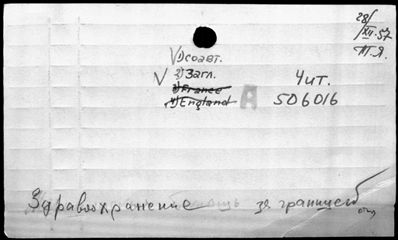 28/
XII.57
1) соавт.
V 2) Загл.
3) France
4) England
A
Чит.
506016
Здравоохранение за границей